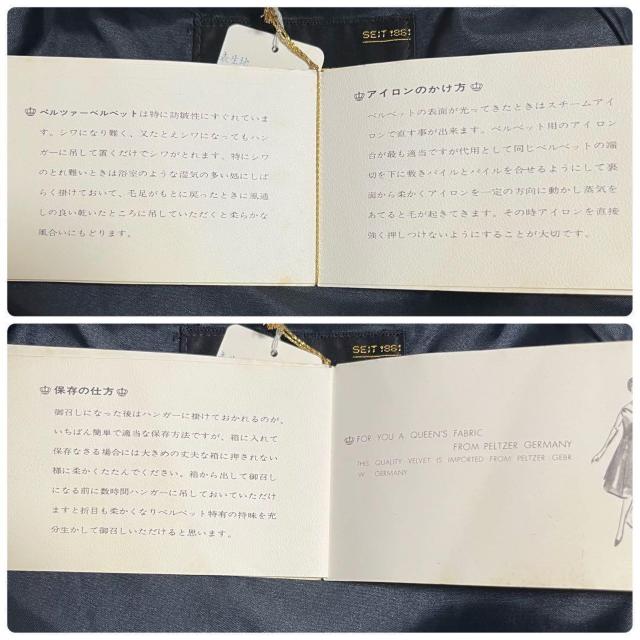 SEIT 1861
ペルツァーベルベットは特に防皺性にすぐれていま
す。シワになり難く、又たとえシワになってもハン
ガーに吊して置くだけでシワがとれます。特にシワ
のとれ難いときは浴室のような湿気の多い処にしば
らく掛けておいて、毛足がもとに戻ったときに風通
しの良い乾いたところに吊していただくと柔らかな
風合いにもどります。
アイロンのかけ方
ベルベットの表面が光ってきたときはスチームアイ
ロンで直す事が出来ます。ベルベット用のアイロン
台が最も適当ですが代用として同じベルベットの端
切を下に敷きパイルとパイルを合せるようにして裏
面から柔くアイロンを一定の方向に動かし蒸気を
あてると毛が起きてきます。その時アイロンを直接
強く押しつけないようにすることが大切です。
SEIT 1861
保存の仕方
御召しになった後はハンガーに掛けておかれるのが、
いちばん簡単で適当な保存方法ですが、箱に入れて
保存なさる場合には大きめの丈夫な箱に押されない
様に柔くたたんでください。箱から出して御召し
になる前に数時間ハンガーに吊しておいていただけ
ますと折目も柔くなりベルベット特有の持味を充
分生かして御召しいただけると思います。
FOR YOU A QUEEN'S FABRIC
FROM PELTZER GERMANY
THIS QUALITY VELVET IS IMPORTED FROM PELTZER GEBR.
W. GERMANY